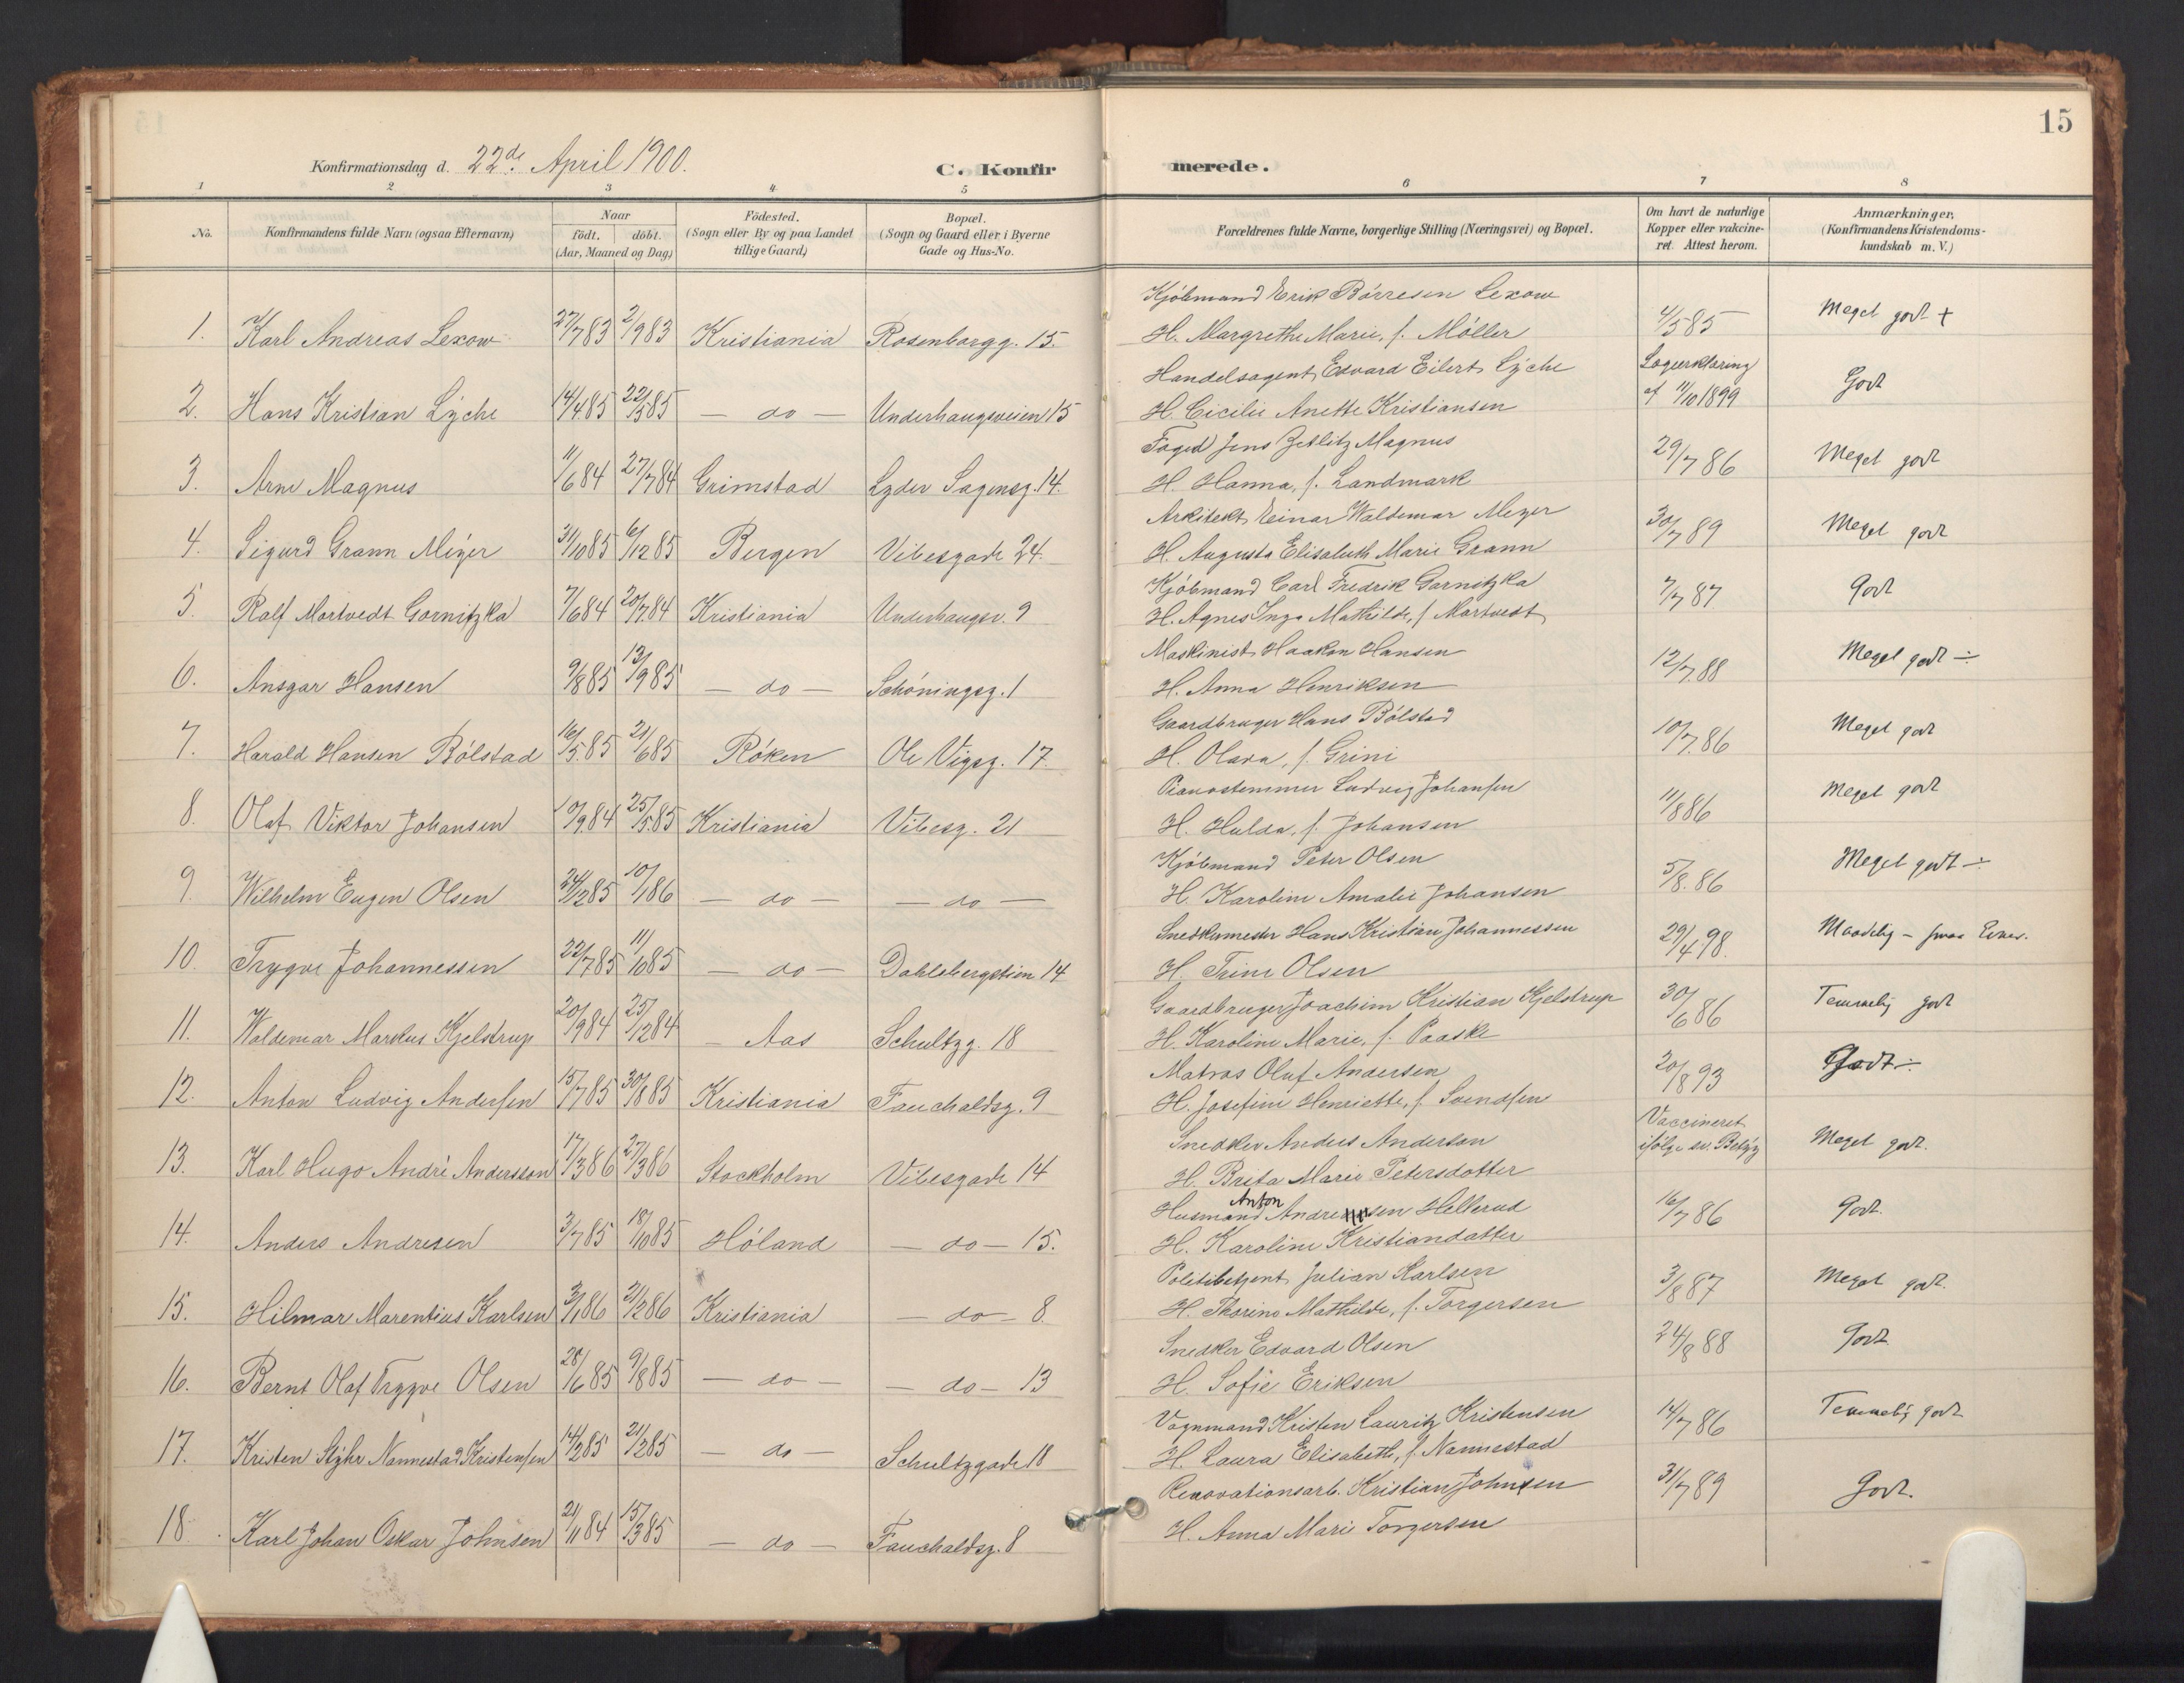 15
Konfirmationsdag d. 22de April 1900.
C. Konfirmerede.
1 2 3 4 5 6 7 8
No.
Konfirmandens fulde Navn (ogsaa Efternavn)
Naar
født. døbt.
(Aar, Maaned og Dag)
Födested.
(Sogn eller By og paa Landet
tillige Gaard)
Bopæl.
(Sogn og Gaard eller i Byerne
Gade og Hus-No.
Forældrenes fulde Navne, borgerlige Stilling (Næringsvei) og Bopæl.
Om havt de naturlige
Kopper eller vakcine-
ret. Attest herom.
Anmærkninger,
(Konfirmandens Kristendoms-
kundskab m. V.)
Kjöbmand Erik Börresen Lexow
1. Karl Andreas Lexow 27/7 83 2/9 83 Kristiania Rosenborgg. 15. H. Margrethe Marie, f. Möller 4/5 85 Meget godt +
Handelsagent Edvard Eilert Lÿche Lægeerklæring
2. Hans Kristian Lÿche 14/4 85 22/5 85 — do — Underhaugsveien 15 H. Cicilie Anette Kristiansen af 11/10 1899 Godt
Foged Jens Zetlitz Magnus
3. Arne Magnus 11/6 84 27/7 84 Grimstad Lyder Sagensg. 14. H. Hanna, f. Landmark 29/7 86 Meget godt
Arkitekt Einar Waldemar Meyer
4. Sigurd Grann Meÿer 31/10 85 6/12 85 Bergen Vibesgade 24. H. Augusta Elisabeth Marie Grann 30/7 89 Meget godt
Kjöbmand Carl Fredrik Gornitzka
5. Ralf Mortvedt Gornitzka 7/6 84 20/7 84 Kristiania Underhaugsv. 9 H. Agnes Inga Mathilde, f. Mortvedt 7/7 87 Godt
Maskinist Haakon Hansen
6. Ansgar Hansen 9/8 85 13/9 85 — do — Schöningsg. 1 H. Anna Henriksen 12/7 88 Meget godt ÷
Gaardbruger Hans Bölstad
7. Harald Hansen Bölstad 16/5 85 21/6 85 Röken Ole Vigsg. 17. H. Olava, f. Grini 10/7 86 Meget godt
Pianostemmer Ludvig Johansen
8. Olaf Viktor Johansen 10/9 84 25/5 85 Kristiania Vibesg. 21 H. Hulda, f. Johansen 11/8 86 Meget godt
Kjöbmand Peter Olsen
9. Wilhelm Eugen Olsen 24/12 85 10/1 86 — do — — do — H. Karoline Amalie Johansen 5/8 86 Meget godt ÷
Snedkermester Hans Kristian Johannessen
10. Trygve Johannessen 22/7 85 11/10 85 — do — Dahlsbergstien 14 H. Trine Olsen 29/4 98. Maadelig – smaa Evner.
Gaardbruger Joachim Kristian Kjelstrup
11. Waldemar Markus Kjelstrup 20/9 84 25/12 84 Aas Schultzg. 18 H. Karoline Marie, f. Paaske 30/6 86 Temmelig godt
Matros Oluf Andersen
12. Anton Ludvig Andersen 15/7 85 30/8 85 Kristiania Fauchaldsg. 9 H. Josefine Henriette, f. Svendsen 20/8 93 Godt ÷
Snedker Anders Anderson Vaccineret
13. Karl Hugo André Andersson 17/3 86 27/3 86 Stockholm Vibesgade 14 H. Brita Maria Petersdotter ifölge sv. Betÿg Meget godt.
Husmand Anton Andresen Hellerud
14. Anders Andresen 3/7 85 18/10 85 Höland — do — 15. H. Karoline Kristiandatter 16/7 86 Godt.
Politibetjent Julian Karlsen
15. Hilmar Marentius Karlsen 3/1 86 21/2 86 Kristiania — do — 8. H. Thorine Mathilde, f. Torgersen 3/8 87 Meget godt.
Snedker Edvard Olsen
16. Bernt Olaf Trygve Olsen 28/6 85 9/8 85 — do — — do — 13 H. Sofie Eriksen 24/8 88 Godt.
Vognmand Kristen Lauritz Kristensen
17. Kristen Stÿhr Nannestad Kristensen 14/2 85 21/2 85 — do — Schultzgade 18 H. Laura Elisabeth, f. Nannestad 14/7 86 Temmelig godt
Renovationsarb. Kristian Johnsen
18. Karl Johan Oskar Johnsen 21/11 84 15/3 85 — do — Fauchaldsg. 8 H. Anna Mari Torgersen 31/7 89 Godt.